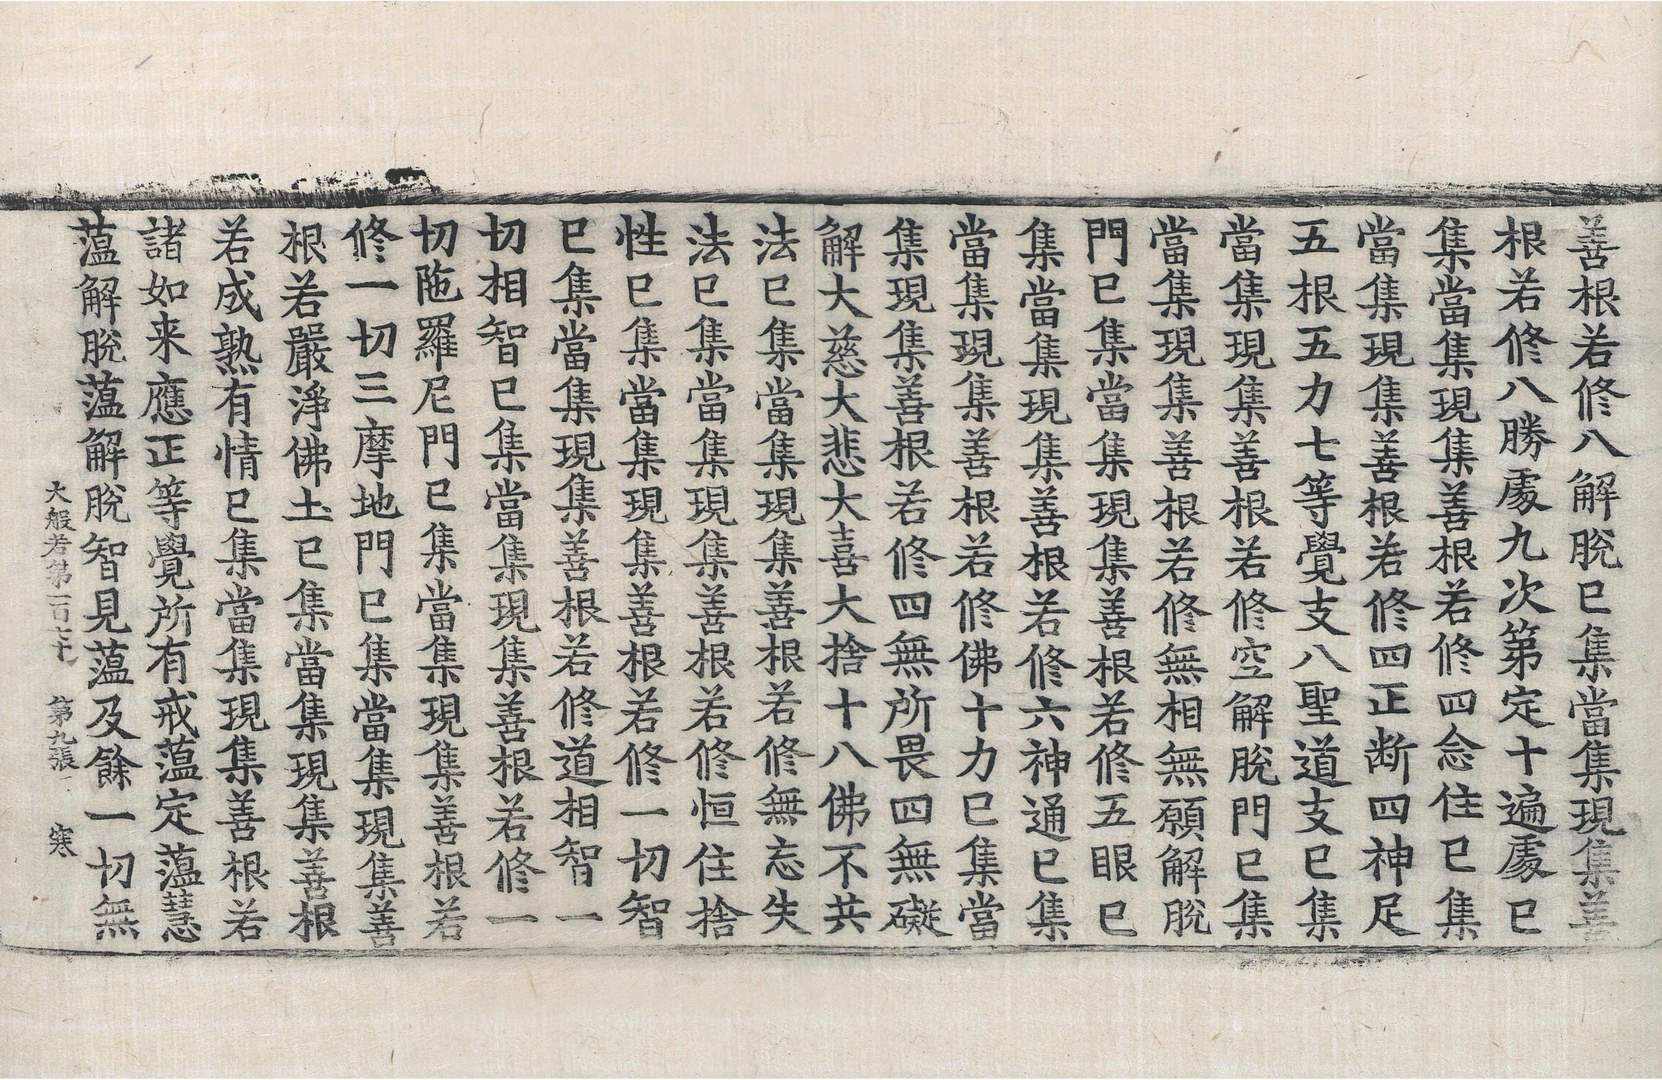 善根若修八解脫已集當集現集善
根若修八勝處九次第定十遍處已
集當集現集善根若修四念住已集
當集現集善根若修四正断四神足
五根五力七等覺支八聖道支已集
當集現集善根若修空解脫門已集
當集現集善根若修無相無願解脫
門已集當集現集善根若修五眼已
集當集現集善根若修六神通已集
當集現集善根若修佛十力已集當
集現集善根若修四無所畏四無礙
解大慈大悲大喜大捨十八佛不共
法已集當集現集善根若修無忘失
法已集當集現集善根若修恒住捨
性已集當集現集善根若修一切智
已集當集現集善根若修道相智一
切相智已集當集現集善根若修一
切陁羅尼門已集當集現集善根若
修一切三摩地門已集當集現集善
根若嚴淨佛土已集當集現集善根
若成熟有情已集當集現集善根若
諸如来應正等覺所有戒薀定薀慧
薀解脫薀解脫智見薀及餘一切無
大般若第一百 第九張 寒